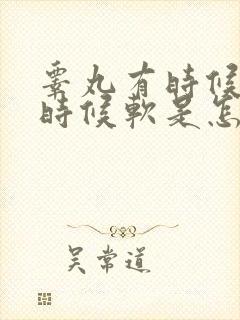 睾丸有時候
時候軟是怎
吴常道